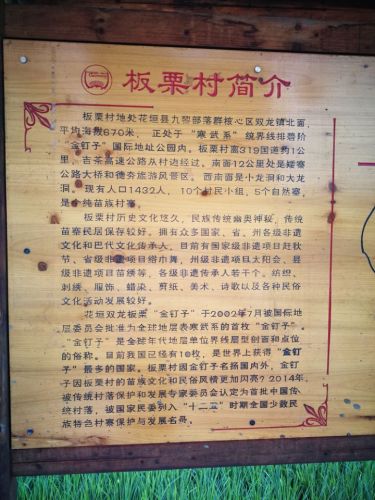 板栗村简介
板栗村地处花垣县九黎部落群核心区双龙镇北面，
平均海拔870米， 正处于“寒武系”统界线排碧阶
“金钉子”国际地址公园内。板栗村离319国道约1公
里，吉茶高速公路从村边经过。南面12公里处是矮寨
公路大桥和德夯旅游风景区。西南面是小龙洞和大龙
洞。现有人口1432人， 10个村民小组，5个自然寨，
是个纯苗族村寨。
板栗村历史文化悠久，民族传统幽奥神秘，传统
苗寨民居保存较好。拥有众多国家、省、州各级非遗
文化和巴代文化传承人，目前有国家级非遗项目赶秋
节、省级非遗项目绺巾舞，州级非遗项目太阳会、县
级非遗项目苗绣等，各级非遗传承人若干个。纺织、
刺绣、服饰、蜡染、剪纸、美术、诗歌以及各种民俗
文化活动发展较好。
花垣双龙板栗“金钉子”于2002年7月被国际地
层委员会批准为全球地层表寒武系的首枚“金钉子”。
“金钉子”是全球年代地层单位界线层型剖面和点位
的俗称。目前我国已经有10枚，是世界上获得“金钉
子”最多的国家。板栗村因金钉子名扬国内外，金钉
子因板栗村的苗族文化和民俗风情更加闪亮？2014年，
被传统村落保护和发展专家委员会认定为首批中国传
统村落，被国家民委列入“十二五”时期全国少数民
族特色村寨保护与发展名录。